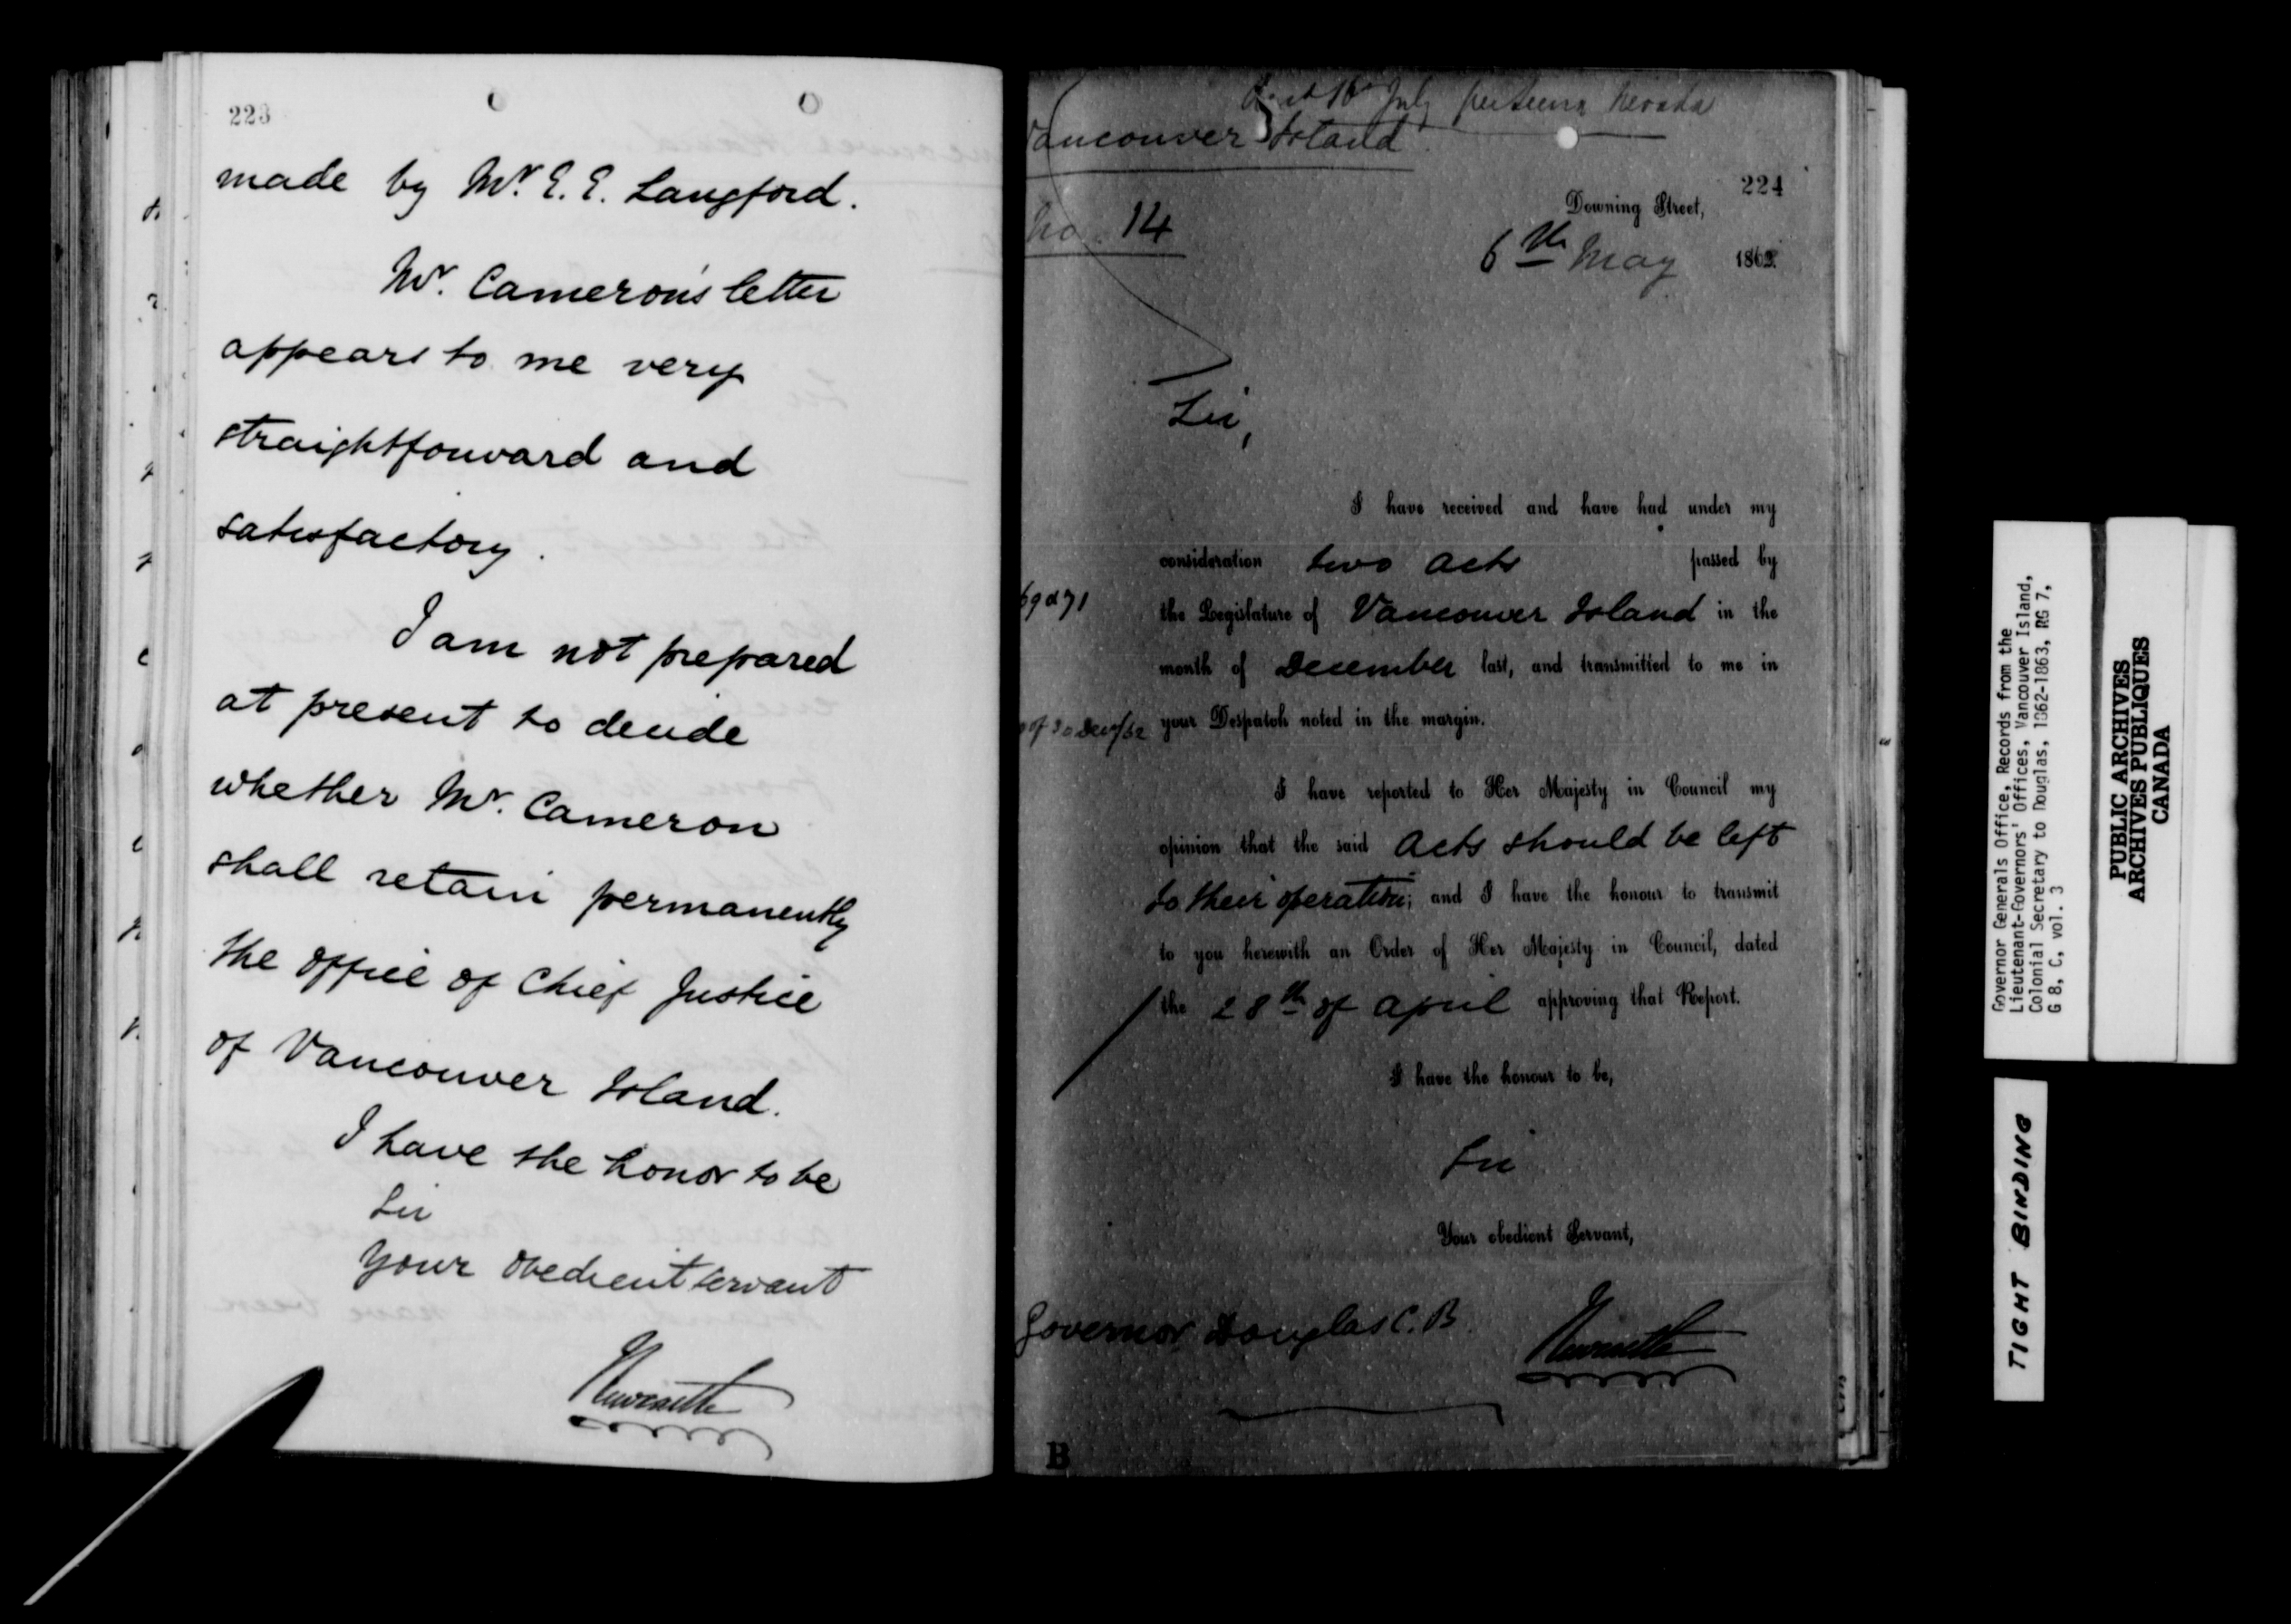 223
made by Mr. E. E. Langford.
Mr. Cameron's letter
appears to me very
straightforward and
satisfactory.
I am not prepared
at present to decide
whether Mr. Cameron
shall retain permanently
the office of Chief Justice
of Vancouver Island.
I have the honor to be
Sir
Your obedient servant
Newcastle
July per Steamer Nevada
Vancouver Island
224
No. 14
Downing Street,
6th May 1863.
Sir,
I have received and have had under my
consideration two Acts passed by
69 & 71
the Legislature of Vancouver Island in the
month of December last, and transmitted to me in
of 30 Decr/62
your Despatch noted in the margin.
I have reported to Her Majesty in Council my
opinion that the said Acts should be left
to their operation; and I have the honour to transmit
to you herewith an Order of Her Majesty in Council, dated
the 28th of April approving that Report.
I have the honour to be,
Sir
Your obedient Servant,
Newcastle
Governor Douglas C. B.
B
Governor Generals Office, Records from the
Lieutenant-Governors' Offices, Vancouver Island,
Colonial Secretary to Douglas, 1862-1863, RG 7,
G 8, C, vol. 3
PUBLIC ARCHIVES
ARCHIVES PUBLIQUES
CANADA
TIGHT BINDING